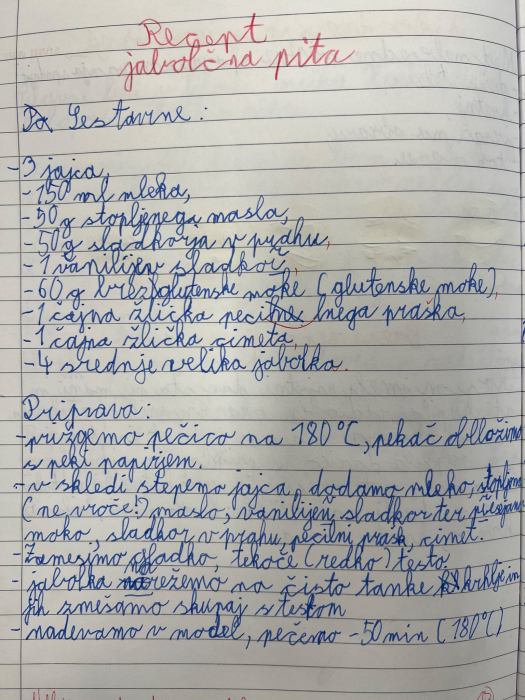 Recept
jabolčna pita
Sestavine:
-3 jajca,
-150 ml mleka,
-50 g stopljenega masla,
-50 g sladkorja v prahu,
-1 vanilijev sladkor,
-60 g brezglutenske moke (glutenske moke),
-1 čajna žlička pecilnega praška,
-1 čajna žlička cimeta,
-4 srednje velika jabolka.
Priprava:
-prižgemo pečico na 180°C, pekač obložimo
s peki papirjem.
-v skledi stepemo jajca, dodamo mleko, stopljeno
(ne vroče!) maslo, vanilijev sladkor ter presejano
moko, sladkor v prahu, pecilni prašk, cimet.
-Zamesimo gladko, tekoče (redko) testo
-jabolka narežemo na čisto tanke krhlje in
jih zmešamo skupaj s testom
-nadevamo v model, pečemo -50 min (180°C)